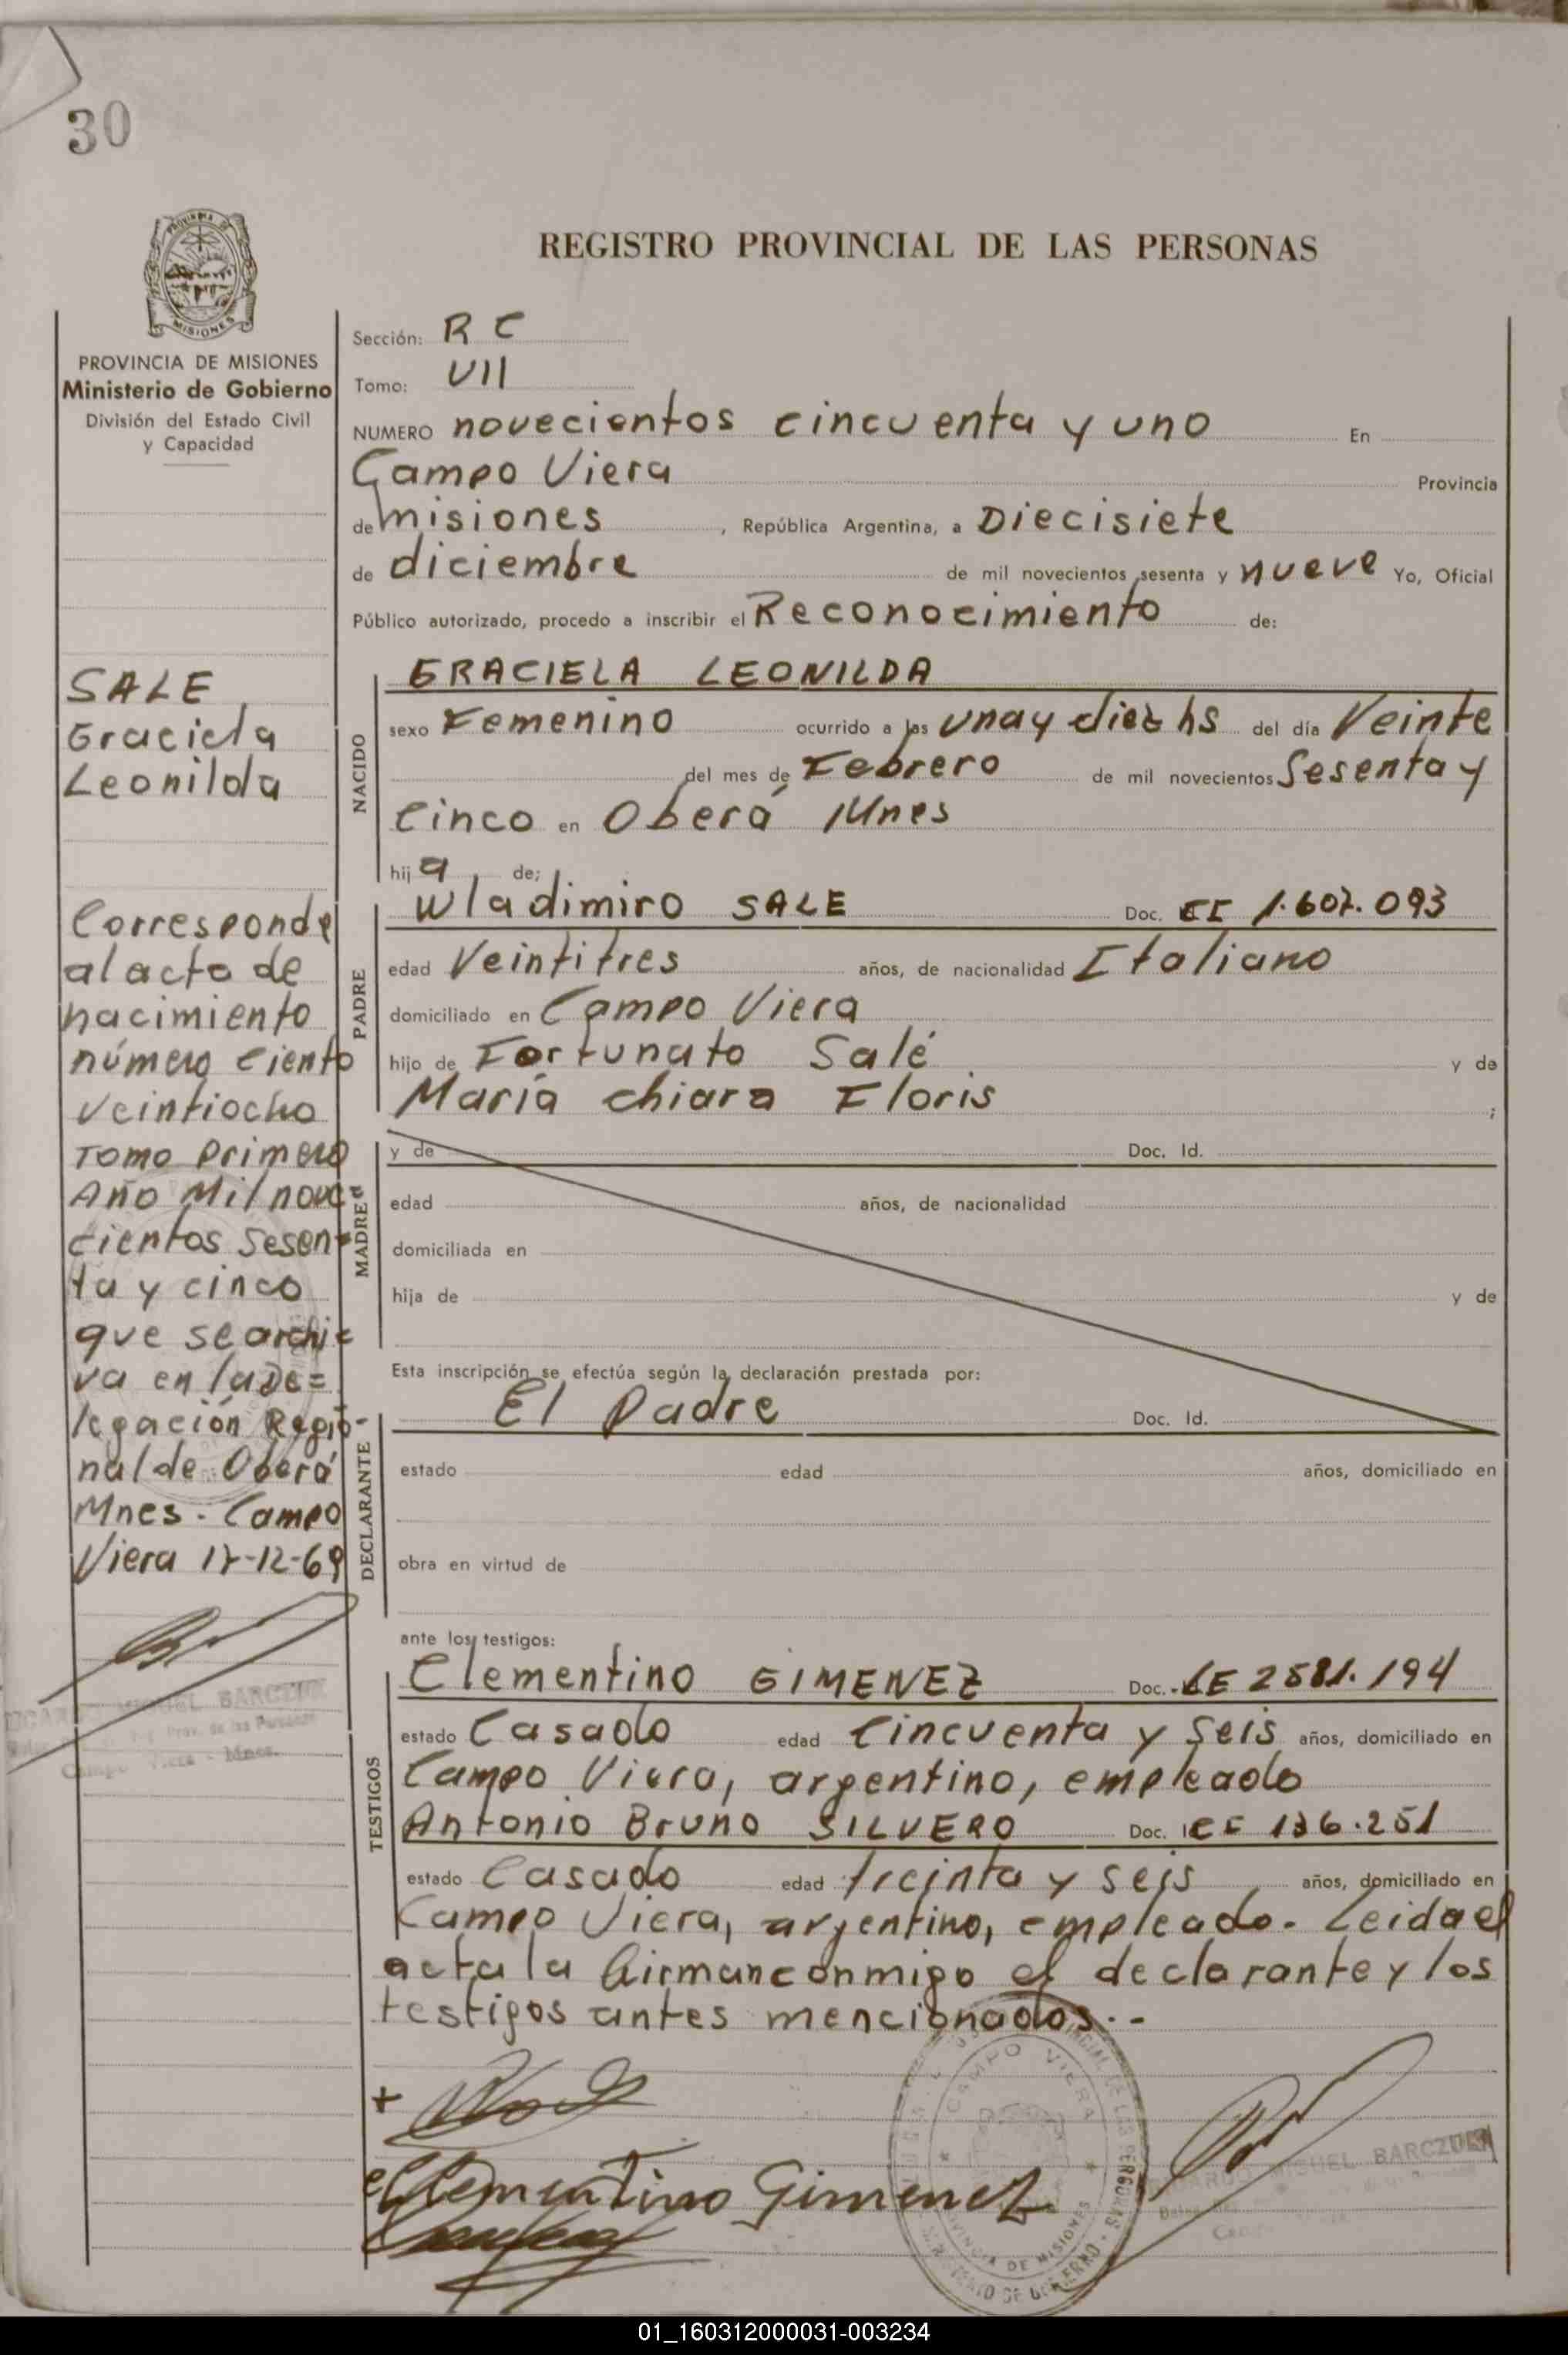 30
REGISTRO PROVINCIAL DE LAS PERSONAS
MISIONES
PROVINCIA DE MISIONES
Ministerio de Gobierno
División del Estado Civil
y Capacidad
Sección: R C
Tomo: VII
NUMERO novecientos cincuenta y uno En
Campo Viera Provincia
de misiones, República Argentina, a Diecisiete
de diciembre de mil novecientos sesenta y nueve Yo, Oficial
Público autorizado, procedo a inscribir el Reconocimiento de:
SALE
Graciela
Leonilda
Corresponde
al acta de
nacimiento
número ciento
veintiocho
Tomo primero
Año Mil nove
cientos sesen=
ta y cinco
que se archi=
va en la De=
legación Regio-
nal de Oberá
Mnes - Campo
Viera 17-12-69
NACIDO
GRACIELA LEONILDA
sexo Femenino ocurrido a las una y diez hs del día Veinte
del mes de Febrero de mil novecientos Sesenta y
cinco en Oberá Mnes
hija de;
PADRE
Wladimiro SALE Doc. CI 1.607.093
edad Veintitres años, de nacionalidad Italiano
domiciliado en Campo Viera
hijo de Fortunato Salé y de
María Chiara Floris ;
MADRE
y de Doc. Id.
edad años, de nacionalidad
domiciliada en
hija de y de
Esta inscripción se efectúa según la declaración prestada por:
DECLARANTE
El Padre Doc. Id.
estado edad años, domiciliado en
obra en virtud de
ante los testigos:
TESTIGOS
Clementino GIMENEZ Doc. LE 2581.194
estado Casado edad Cincuenta y seis años, domiciliado en
Campo Viera, argentino, empleado
Antonio Bruno SILVERO Doc. 136.251
estado Casado edad treinta y seis años, domiciliado en
Campo Viera, argentino, empleado. Leida el
acta la firman conmigo el declarante y los
testigos antes mencionados.-
Clementino Gimenez
CAMPO VIERA
PROVINCIA DE MISIONES
MINISTERIO DE GOBIERNO
MIGUEL BARCZUK
01_160312000031-003234